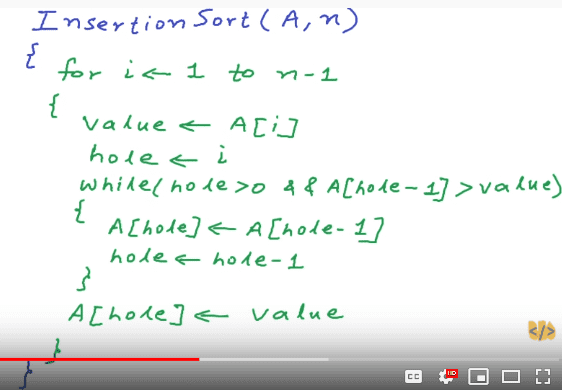 InsertionSort(A,n)
{
for i← 1 to n-1
{
value ← A[i]
hole ← i
while(hole>0 && A[hole-1]>value)
{
A[hole]← A[hole-1]
hole ← hole-1
}
A[hole]← value
</>
}
}
CC
HD